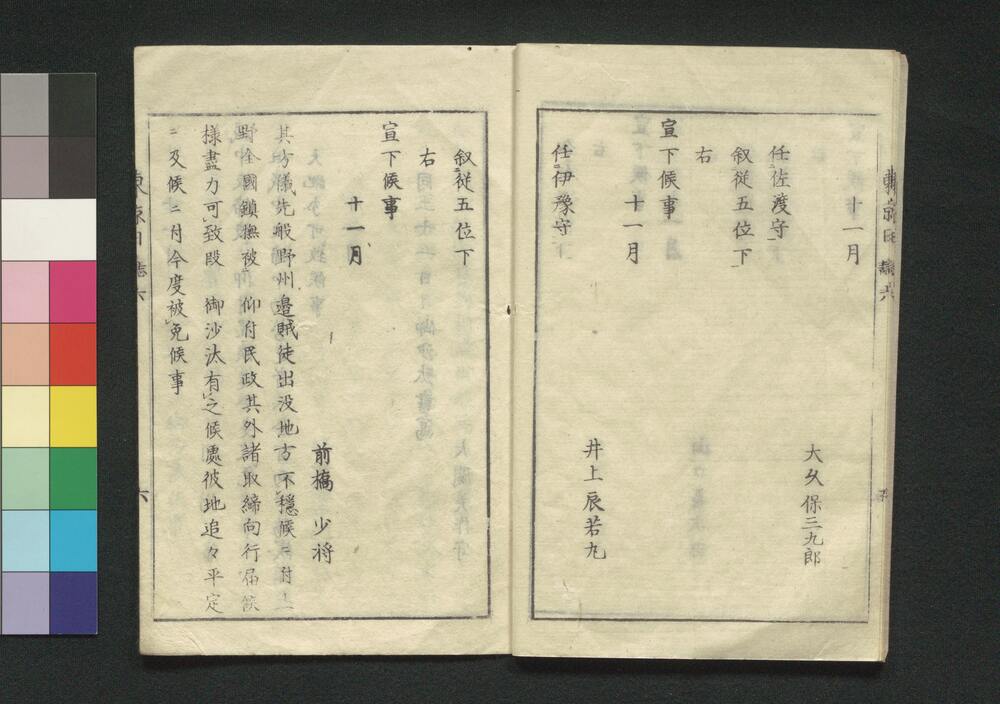 十一月
大久保三九郎
任佐渡守
叙従五位下
右
宣下候事
十一月
井上辰若丸
任伊豫守
叙従五位下
右
宣下候事
十一月
前橋少将
其方儀先般野州邉賊徒出没地方不穏候ニ付上
野全國鎮撫被 仰付民政其外諸取締向行届候
様盡力可致段 御沙汰有之候處彼地追々平定
ニ及候ニ付今度被免候事
六